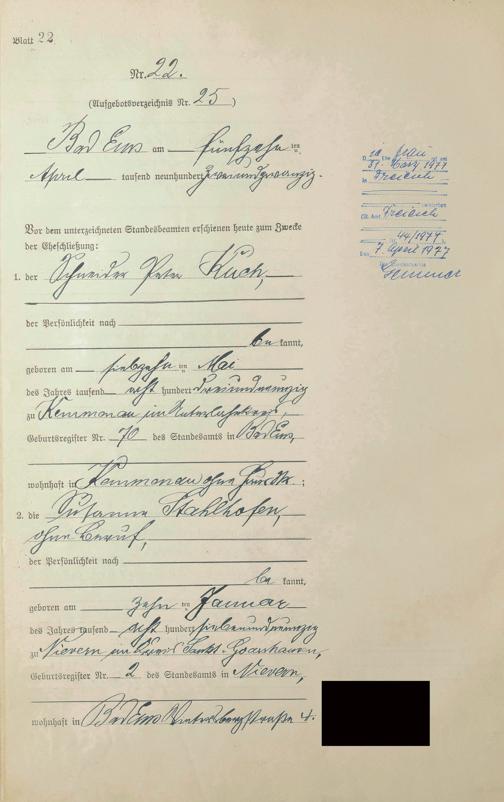 Blatt 22
Nr. 22.
(Aufgebotsverzeichnis Nr. 25)
Bad Ems am fünfzehn ten
April tausend neunhundert zweiundzwanzig.
Vor dem unterzeichneten Standesbeamten erschienen heute zum Zwecke
der Eheschließung:
1. der Schneider Peter Kuch,
der Persönlichkeit nach
be kannt,
geboren am siebzehn ten Mai
des Jahres tausend acht hundert dreiundneunzig
zu Kemmenau im Unterlahnkreis,
Geburtsregister Nr. 70 des Standesamts in Bad Ems,
wohnhaft in Kemmenau ohne ;
2. die Susanne Stahlhofen,
ohne Beruf,
der Persönlichkeit nach
be kannt,
geboren am zehn ten Januar
des Jahres tausend acht hundert siebenundneunzig
zu Nievern im Kreis Sankt Goarshausen,
Geburtsregister Nr. 2 des Standesamts in Nievern,
wohnhaft in Bad Ems Wintersbergstraße 4.
31. März 1977
in Dreieich
Dreieich
44/1977
7. April 1977